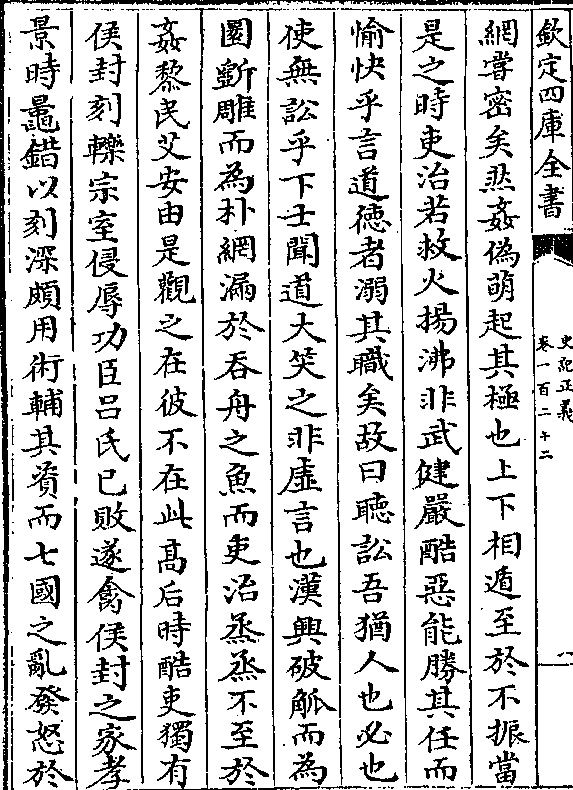 欽定四庫全書
史記正義
卷一百二十二
八
網嘗密矣然姦偽萌起其極也上下相遁至於不振當
是之時吏治若救火揚沸非武健嚴酷惡能勝其任而
愉快乎言道德者溺其職矣故曰聽訟吾猶人也必也
使無訟乎下士聞道大笑之非虛言也漢興破觚而為
圜斵雕而為朴網漏於吞舟之魚而吏治烝烝不至於
姦黎民艾安由是觀之在彼不在此髙后時酷吏獨有
侯封刻轢宗室侵辱功臣吕氏已敗遂禽侯封之家孝
景時鼂錯以刻深頗用術輔其資而七國之亂發怒於